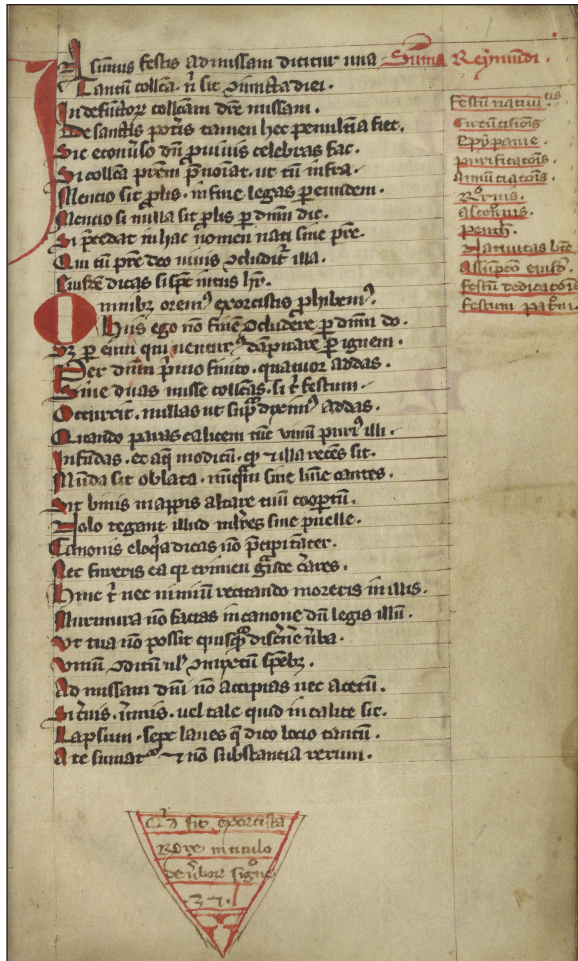 Summa Reymundi.
In summis festis ad missam dicitur una
Tantum collecta. n̄ sit ꝯiuncta diei.
In defunctorū collectam dic̄e missam.
De sanctis pot̄is tamen hec penultīa fiet.
Sic econūso dn̄ p̄ viuis celebras fac.
Si collc̄a p̄rem p̄noīat. ut tū infra.
Mencio sit ꝓlis. in fine legas ꝑ eundem.
Mencio si nulla sit ꝓlis ꝑ dnm̄ dic.
Si p̄cedat in hac nomen nati sine p̄re.
Qui tū p̄re deo nimis ꝯcludit᷑ illa.
dicas si
Omnibꝫ oremꝰ exorcistis ꝓhibemꝰ.
Huis ego nō finē ꝯcludere ꝑ dnm̄ do.
Sꝫ ꝑ eum qui uenturꝰ dāpnare ꝑ ignem.
Per dn̄m p̄mo finito. quatuor addas.
Siue duas misse collectas. si t̄ festum.
Occurrit. nullas ut sup̄ diximꝰ addas.
Quando paras calicem tūc vinū purꝰ illi.
Infūdas. et aq̄ modicū. qꝫ ⁊ illa recēs sit.
Mūda sit oblata. nūq̄m sine lūīe cantes.
Sit binis mappis altare tuū coop̄tū.
Nolo tegant illud mlr̄es siue puelle.
Canonis eloq̄a dicas nō p̄cipitāter.
Nec fueris ea qꝛ crimen gͣnde
Hinc t̄ nec nimiū recitando moreris in illis.
Murmura nō facias in canone dū legis illū.
Vt tua nō possit quisqͣ disc̄ne ūba.
Vinū ꝯditū ul̓ ꝯmixtū spēbꝫ.
Ad missam dn̄i nō accipias nec acetū.
vel tale quid in calice sic.
Lapsum. sepe laues q̄ dico locio tantū.
A te sumatꝰ ⁊ nō substantia rerum.
Festū natiuitis
Circūcisiōis
Epyphanie.
purificatōis.
Annūciatōis.
Ascēnsis.
Penth̄.
Natiuitas btē
Assūpcō eiusd̄.
Festū dedicatōis
Festum pat̄ni.
Qͥd sit exorcista
in titulo
signo
27.